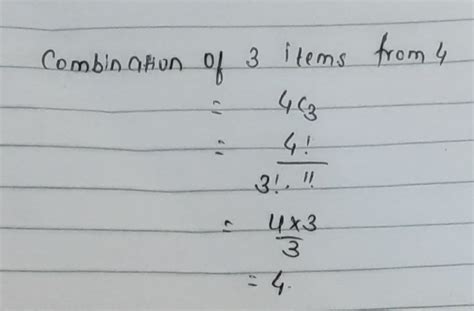 Combination of 3 items from 4
= 4C3
= 4!
3!. 1!
= 4x3
3
= 4.